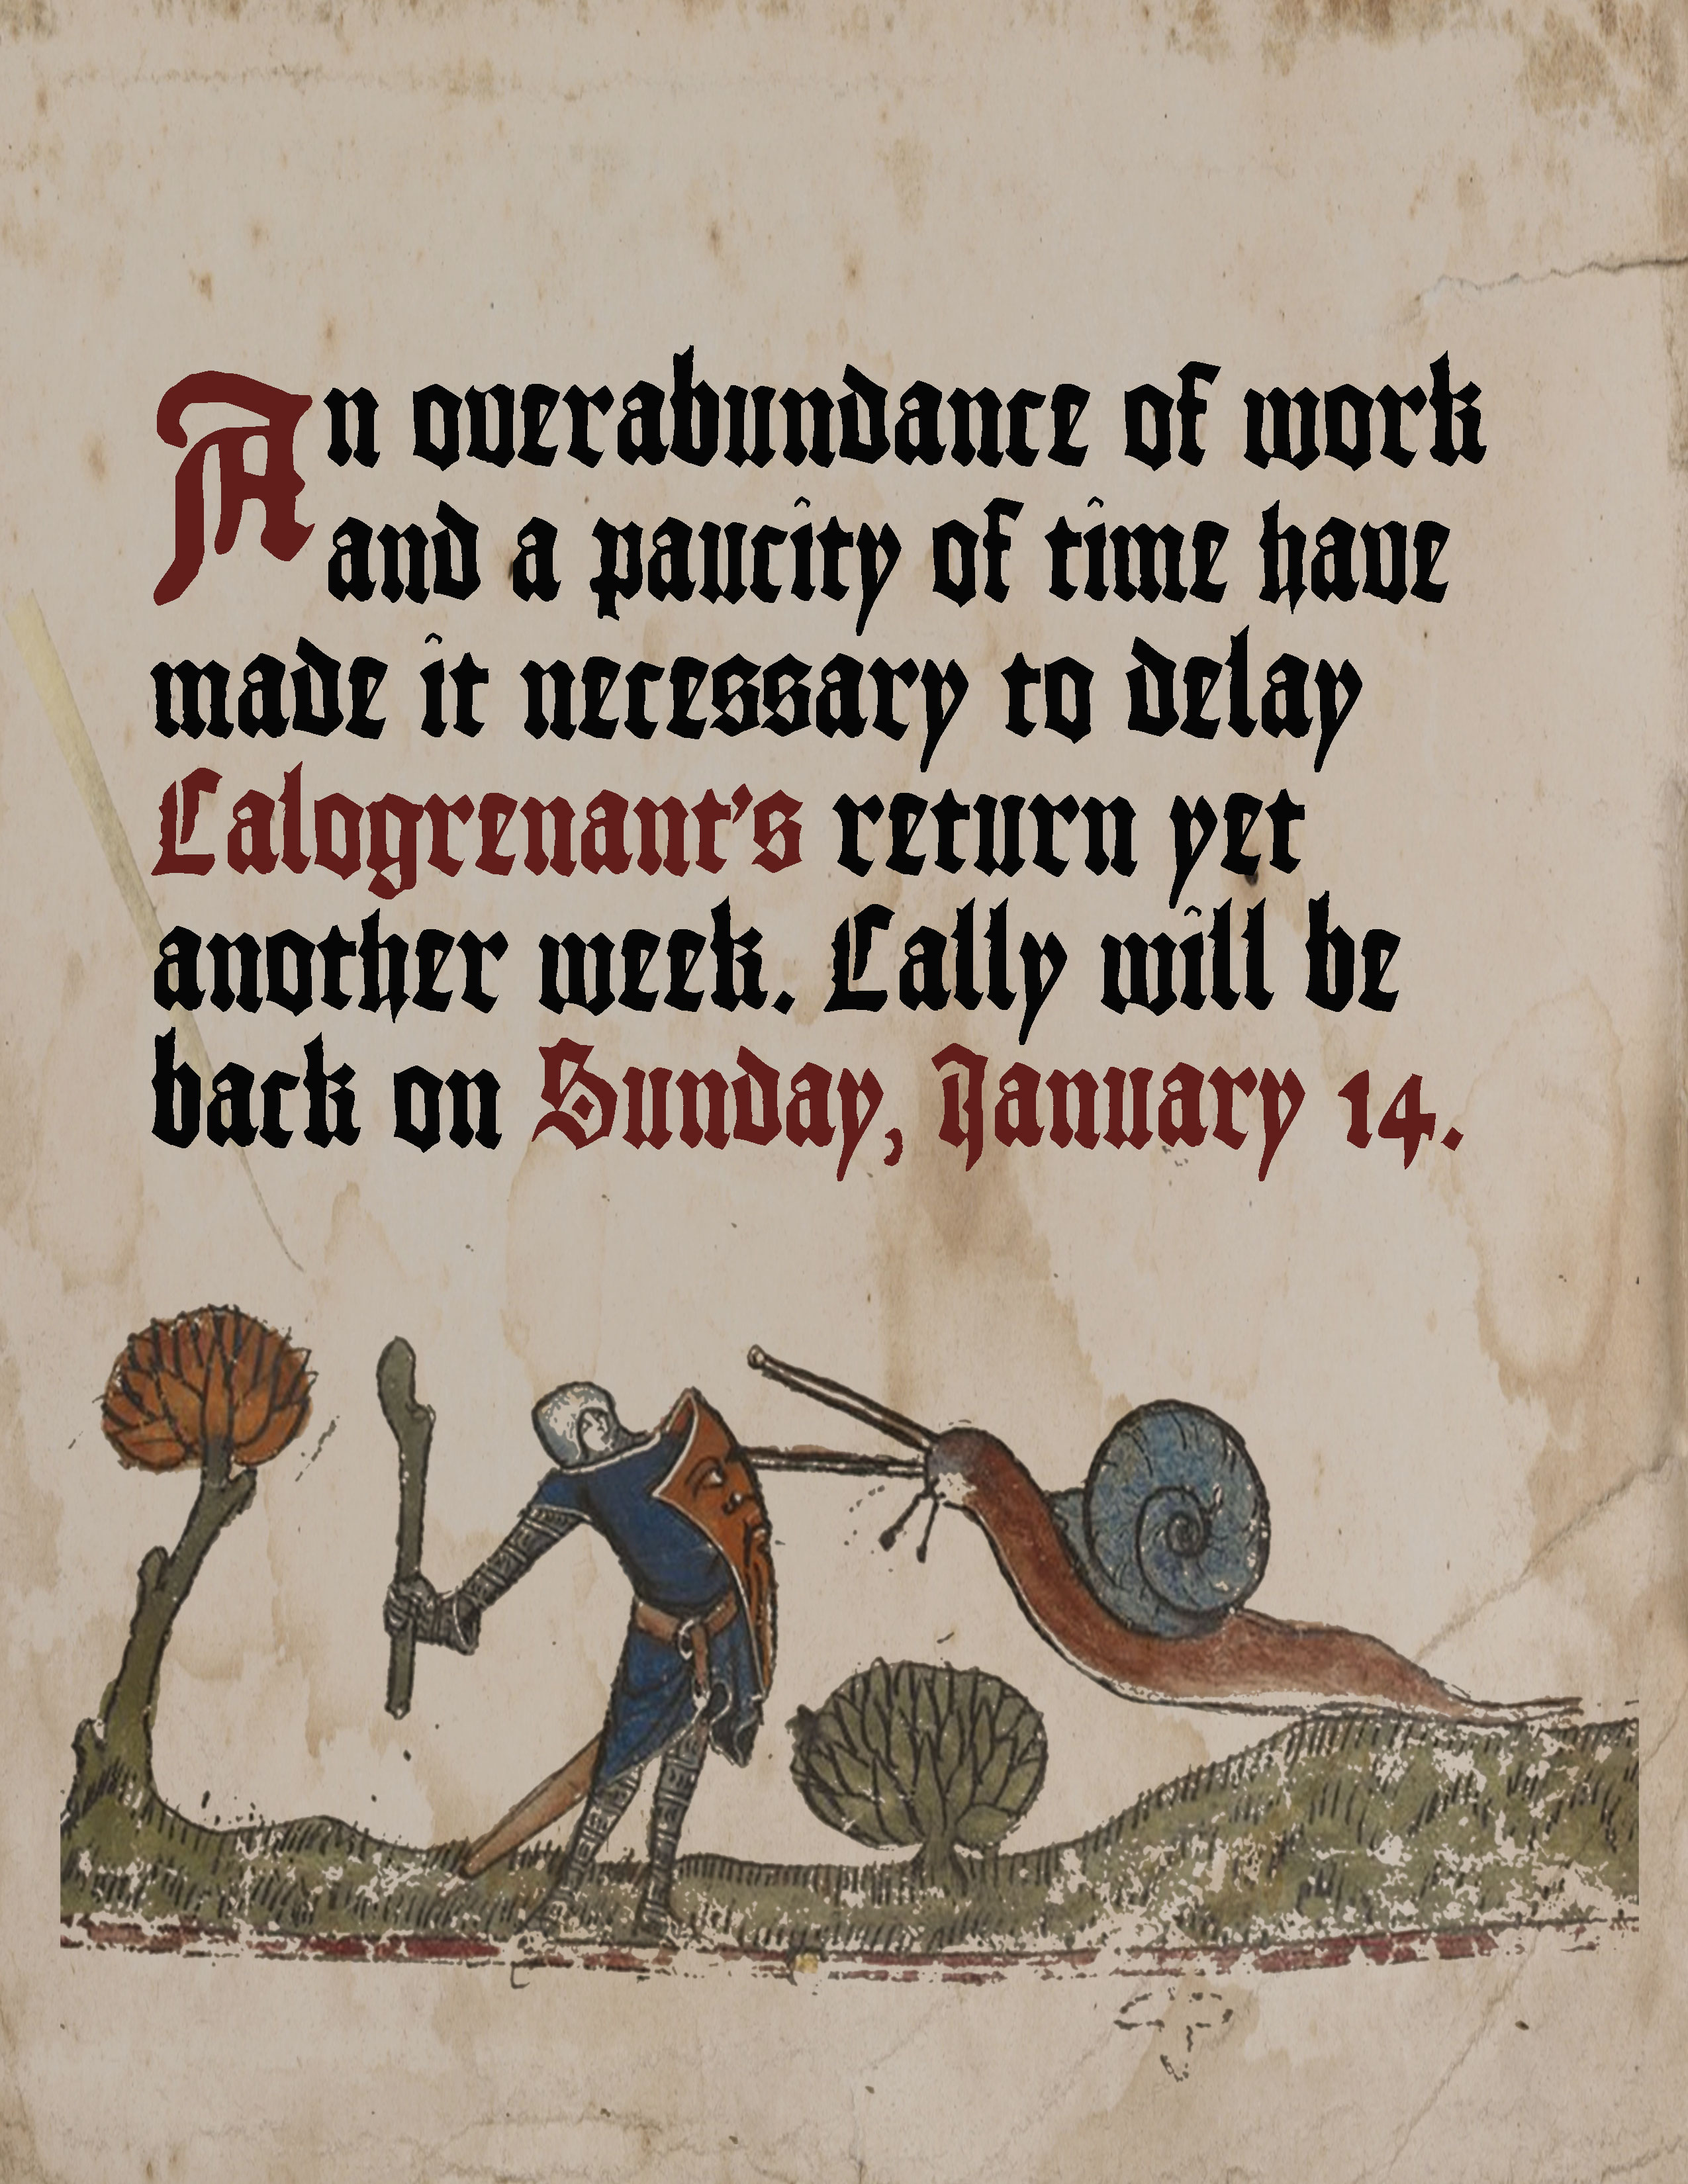 An overabundance of work
and a paucity of time have
made it necessary to delay
Calogrenant's return yet
another week. Cally will be
back on Sunday, January 14.